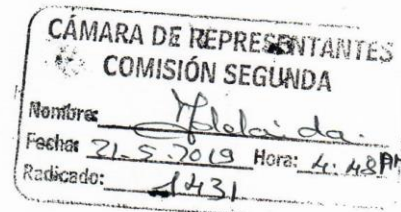 CÁMARA DE REPRESENTANTES
COMISIÓN SEGUNDA
Nombre: Adelaida.
Fecha: 21-5-2019 Hora: 4:48 PM
Radicado: 1431